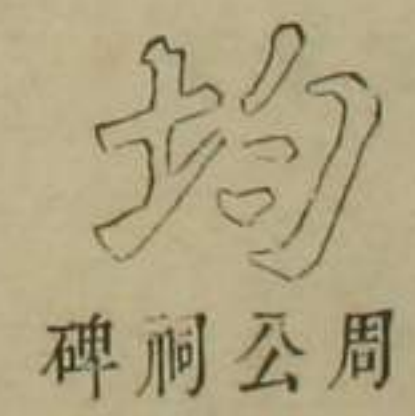 均
周公祠碑